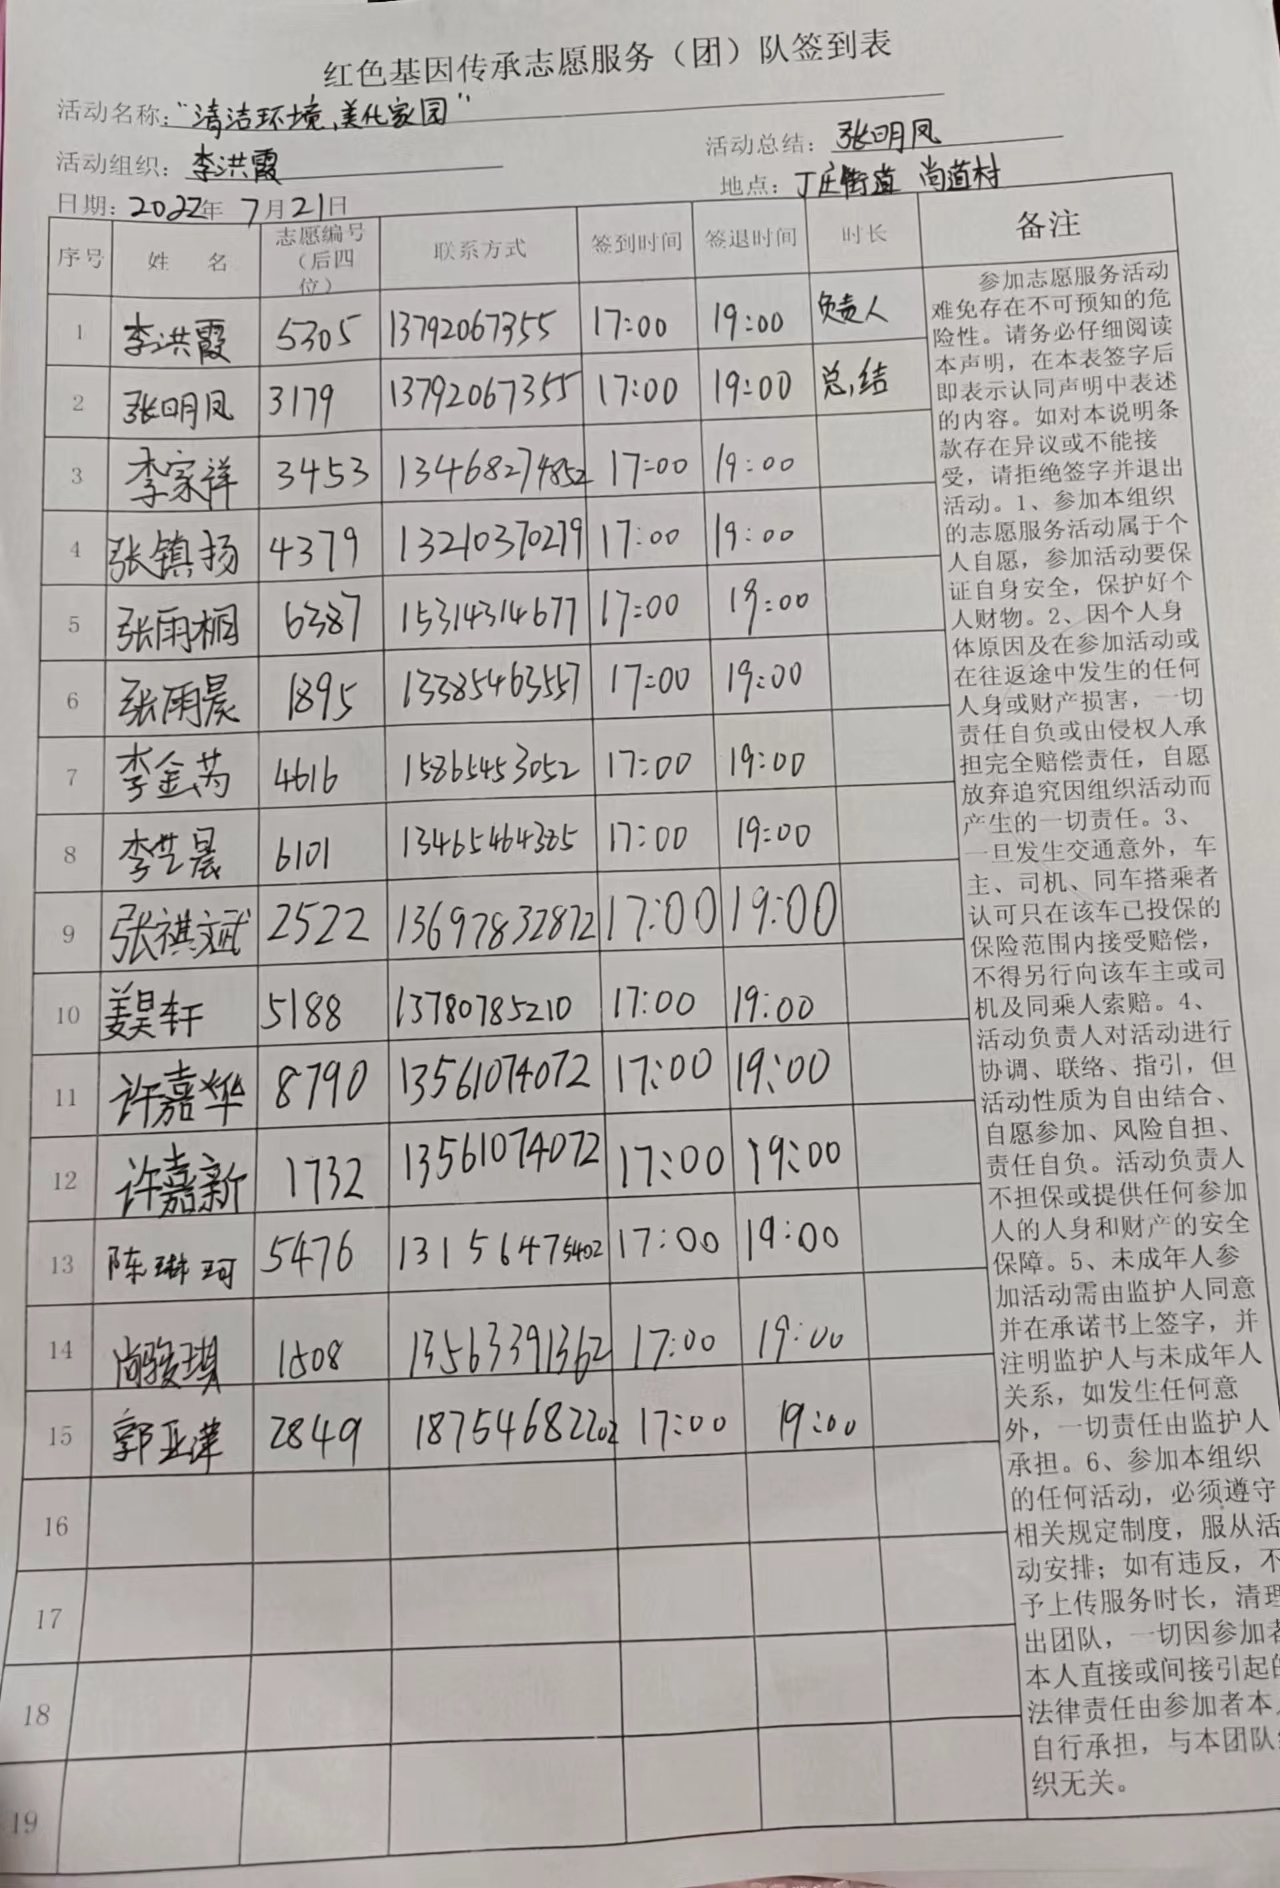 红色基因传承志愿服务（团）队签到表
活动名称："清洁环境,美化家园"
活动组织：李洪霞 活动总结：张明凤
日期：2022年 7月21日 地点：丁庄街道 尚道村
序号 姓 名 志愿编号（后四位） 联系方式 签到时间 签退时间 时长 备注
1 李洪霞 5305 13792067355 17:00 19:00 负责人
2 张明凤 3179 13792067355 17:00 19:00 总结
3 李家祥 3453 13468274852 17:00 19:00
4 张镇扬 4379 13210370279 17:00 19:00
5 张雨桐 6387 15314314677 17:00 19:00
6 张雨晨 1895 13385463557 17:00 19:00
7 李金芮 4616 15865453052 17:00 19:00
8 李艺晨 6101 13465464385 17:00 19:00
9 张祺斌 2522 13697832872 17:00 19:00
10 姜昊轩 5188 13780785210 17:00 19:00
11 许嘉烨 8790 13561074072 17:00 19:00
12 许嘉新 1732 13561074072 17:00 19:00
13 陈琳珂 5476 13156475402 17:00 19:00
14 尚骏琪 1508 13563391362 17:00 19:00
15 郭亚洋 2849 18754682202 17:00 19:00
16
17
18
19
参加志愿服务活动
难免存在不可预知的危
险性。请务必仔细阅读
本声明，在本表签字后
即表示认同声明中表述
的内容。如对本说明条
款存在异议或不能接
受，请拒绝签字并退出
活动。1、参加本组织
的志愿服务活动属于个
人自愿，参加活动要保
证自身安全，保护好个
人财物。2、因个人身
体原因及在参加活动或
在往返途中发生的任何
人身或财产损害，一切
责任自负或由侵权人承
担完全赔偿责任，自愿
放弃追究因组织活动而
产生的一切责任。3、
一旦发生交通意外，车
主、司机、同车搭乘者
认可只在该车已投保的
保险范围内接受赔偿，
不得另行向该车主或司
机及同乘人索赔。4、
活动负责人对活动进行
协调、联络、指引，但
活动性质为自由结合、
自愿参加、风险自担、
责任自负。活动负责人
不担保或提供任何参加
人的人身和财产的安全
保障。5、未成年人参
加活动需由监护人同意
并在承诺书上签字，并
注明监护人与未成年人
关系，如发生任何意
外，一切责任由监护人
承担。6、参加本组织
的任何活动，必须遵守
相关规定制度，服从活
动安排；如有违反，不
予上传服务时长，清理
出团队，一切因参加者
本人直接或间接引起的
法律责任由参加者本人
自行承担，与本团队组
织无关。